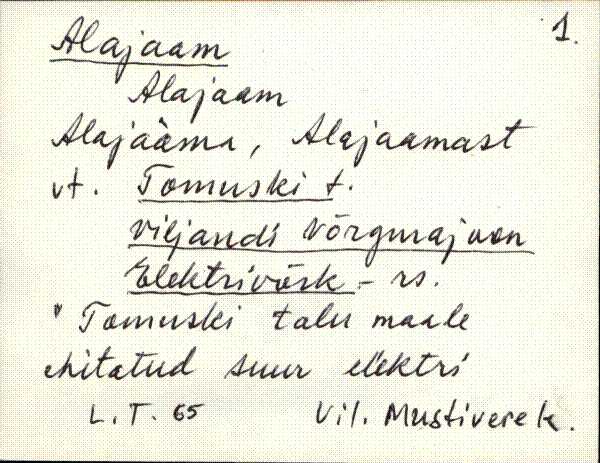 1.
Alajaam
Alajaam
Alajaama, Alajaamast
vt. Tomuski t.
Viljandi Võrgurajoon
Elektrivõrk - rs.
" Tomuski talu maale
ehitatud suur elektri
L. T. 65 Vil. Mustivere k.